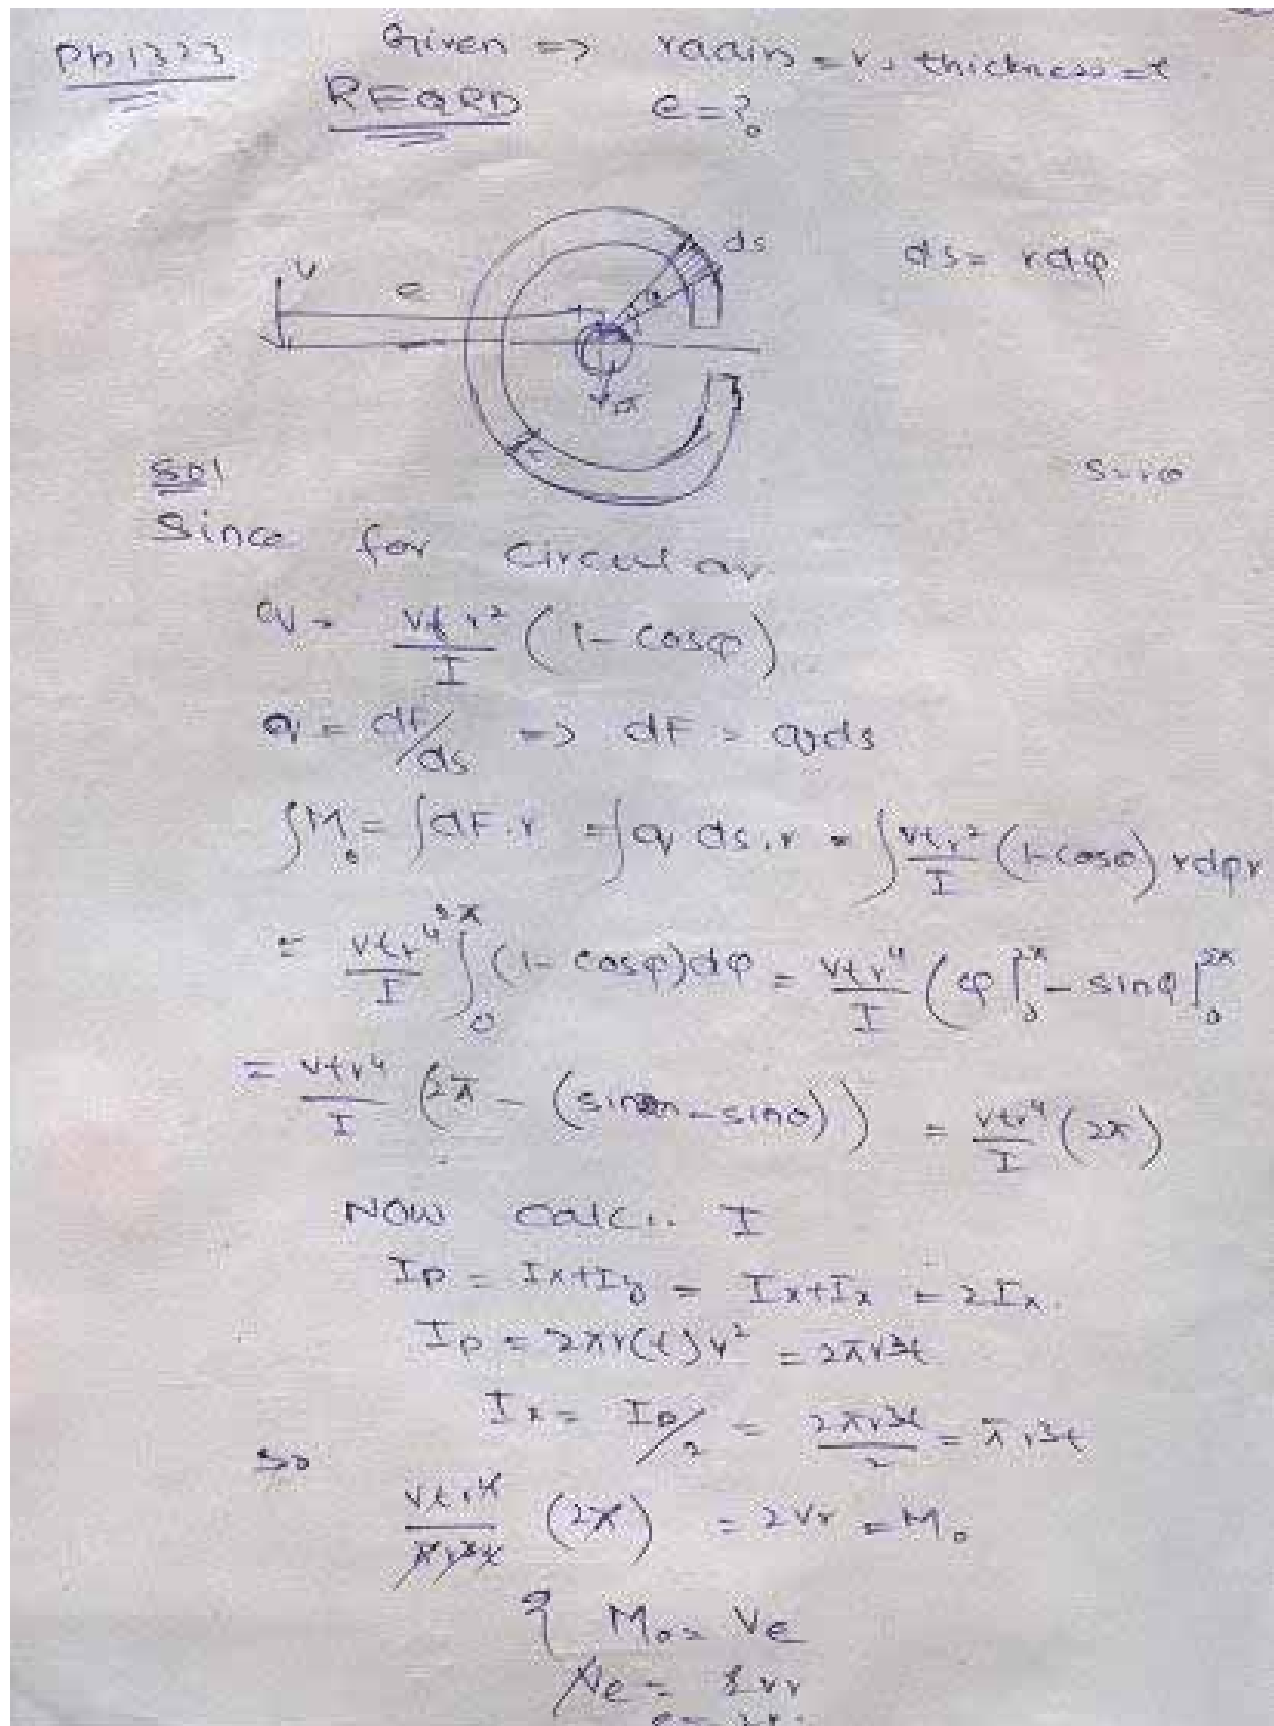 Pb 1323 Given => radius = r, thickness = t
REQRD e = ?
ds
ds = rdφ
V
e
t
Sol
Since for circular
q = Vtr²/I (1 - cosφ)
q = dF/ds => dF = qds
∫M₀ = ∫dF.r = ∫q ds.r = ∫Vtr²/I (1-cosφ) rdφr
= Vtr⁴/I ∫₀^2π (1 - cosφ)dφ = Vtr⁴/I (φ|₀^2π - sinφ|₀^2π
= Vtr⁴/I (2π - (sin2π - sin0)) = Vtr⁴/I (2π)
NOW calc: I
Ip = Ix+Iy = Ix+Ix = 2Ix.
Ip = 2πr(t)r² = 2πr³t
Ix = Ip/2 = 2πr³t/2 = πr³t
So
Vtr⁴/πr³t (2π) = 2Vr = M₀
M₀ = Ve
Ve = 2Vr
e = 2r